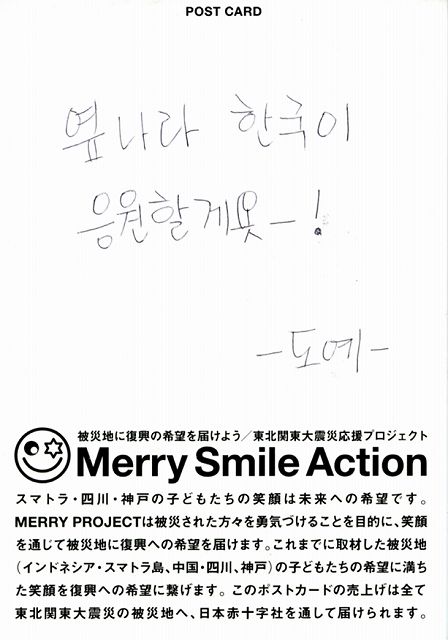 POST CARD
옆나라 한국이
응원할게욧-!
-도예-
被災地に復興の希望を届けよう／東北関東大震災応援プロジェクト
Merry Smile Action
スマトラ・四川・神戸の子どもたちの笑顔は未来への希望です。
MERRY PROJECTは被災された方々を勇気づけることを目的に、笑顔
を通じて被災地に復興への希望を届けます。これまでに取材した被災地
（インドネシア・スマトラ島、中国・四川、神戸）の子どもたちの希望に満ち
た笑顔を復興への希望に繋げます。このポストカードの売上げは全て
東北関東大震災の被災地へ、日本赤十字社を通して届けられます。